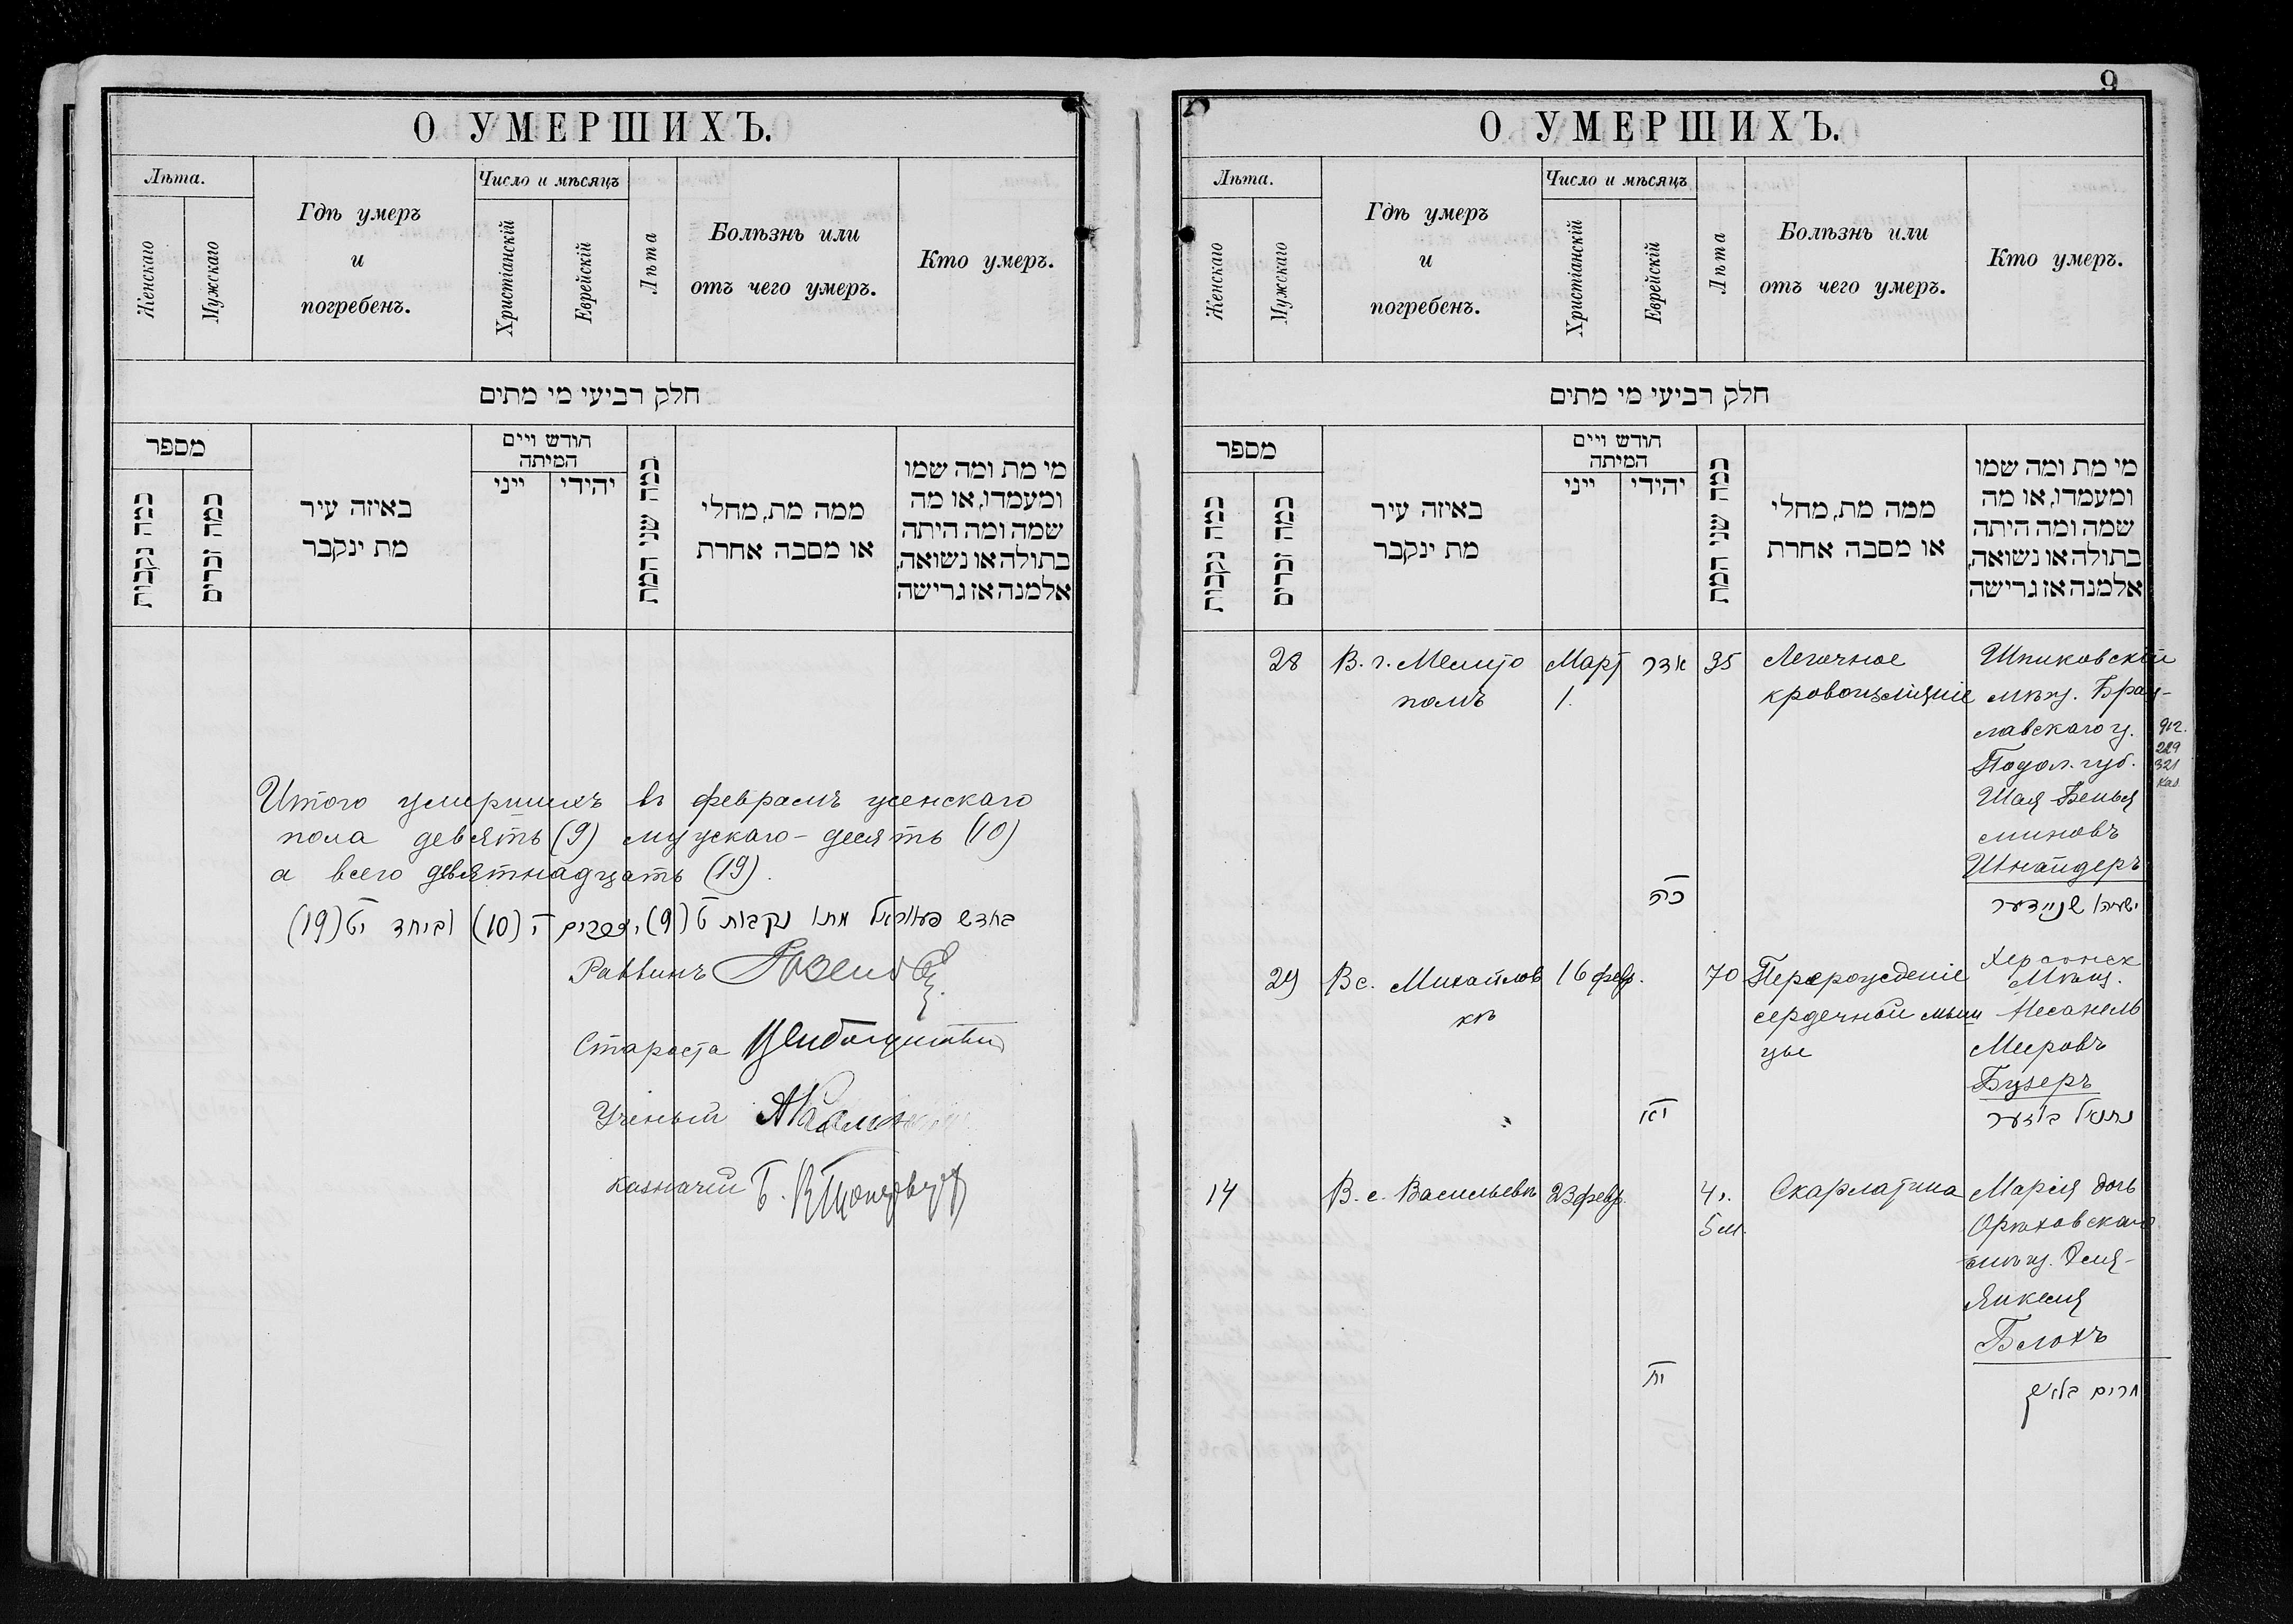 О УМЕРШИХЪ.
Лѣта.
Женскаго
Мужскаго
Гдѣ умеръ
и
погребенъ.
Число и мѣсяцъ
Христіанскій
Еврейскій
Лѣта
Болѣзнь или
отъ чего умеръ.
Кто умеръ.
חלק רביעי מי מתים
מספר
כמה נקבות
כמה זכרים
באיזה עיר
מת ינקבר
חודש ויום
המיתה
ייני
יהידי
כמה שני המת
ממה מת, מחלי
או מסבה אחרת
מי מת ומה שמו
ומעמדו, או מה
שמה ומה היתה
בתולה או נשואה,
אלמנה אז גרישה
Итого умершихъ въ февралѣ женскаго
пола девять (9) мужскаго - десять (10)
а всего девятнадцать (19).
בחדש פעווראל מתו נקבות ט (9), זכרים י (10) וביחד יט (19)
Раввинъ
Староста
Ученый
Казначей Б.
9
О УМЕРШИХЪ.
Лѣта.
Женскаго
Мужскаго
Гдѣ умеръ
и
погребенъ.
Число и мѣсяцъ
Христіанскій
Еврейскій
Лѣта
Болѣзнь или
отъ чего умеръ.
Кто умеръ.
חלק רביעי מי מתים
מספר
כמה נקבות
כמה זכרים
באיזה עיר
מת ינקבר
חודש ויום
המיתה
ייני
יהידי
כמה שני המת
ממה מת, מחלי
או מסבה אחרת
מי מת ומה שמו
ומעמדו, או מה
שמה ומה היתה
בתולה או נשואה,
אלמנה אז גרישה
28
В. г. Мелито
полѣ
Март
1.
אדר
כה
35
Легочное
кровоизліяніе
Шпиковскій
мѣщ. Брац-
лавскаго у.
Подол. губ.
Шая Бенья
миновъ
Шнайдеръ
ישעיהו שניידער
912.
229
321
каз
29
В с. Михайлов
кѣ
16 февр.
יא
70
Перерожденіе
сердечной мыш
цы
Херсонск
Мѣщ.
Несанель
Мееровъ
Бузеръ
נתנאל בוזער
14
В. с. Васильевкѣ
23 февр.
יח
4 г.
5 м.
Скарлатина
Марія дочь
Орѣховскаго
мѣщ.
Янкеля
Блохъ
מרים בלאך